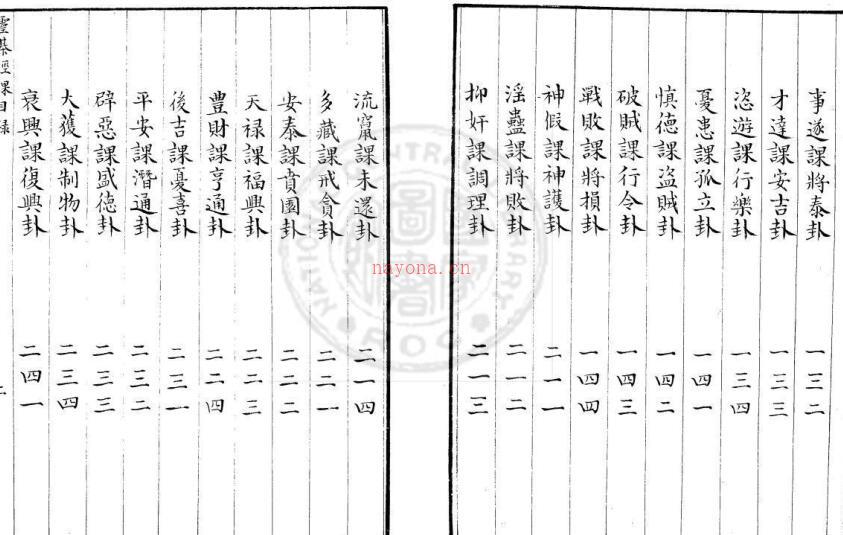 事遂課將泰卦 一三二
才達課安吉卦 一三三
恣遊課行樂卦 一三四
憂患課孤立卦 一四一
慎德課盜賊卦 一四二
破賊課行令卦 一四三
戰敗課將損卦 一四四
神假課神護卦 二一一
淫蠱課將敗卦 二一二
抑奸課調理卦 二一三
流竄課未還卦 二一四
多藏課戒貪卦 二二一
安泰課賁園卦 二二二
天祿課福興卦 二二三
豐財課亨通卦 二二四
後吉課憂喜卦 二三一
平安課潛通卦 二三二
辟惡課盛德卦 二三三
大獲課制物卦 二三四
衰興課復興卦 二四一
靈棊經課目錄 二
NATIONAL CENTRAL LIBRARY
ROC
nayona.cn